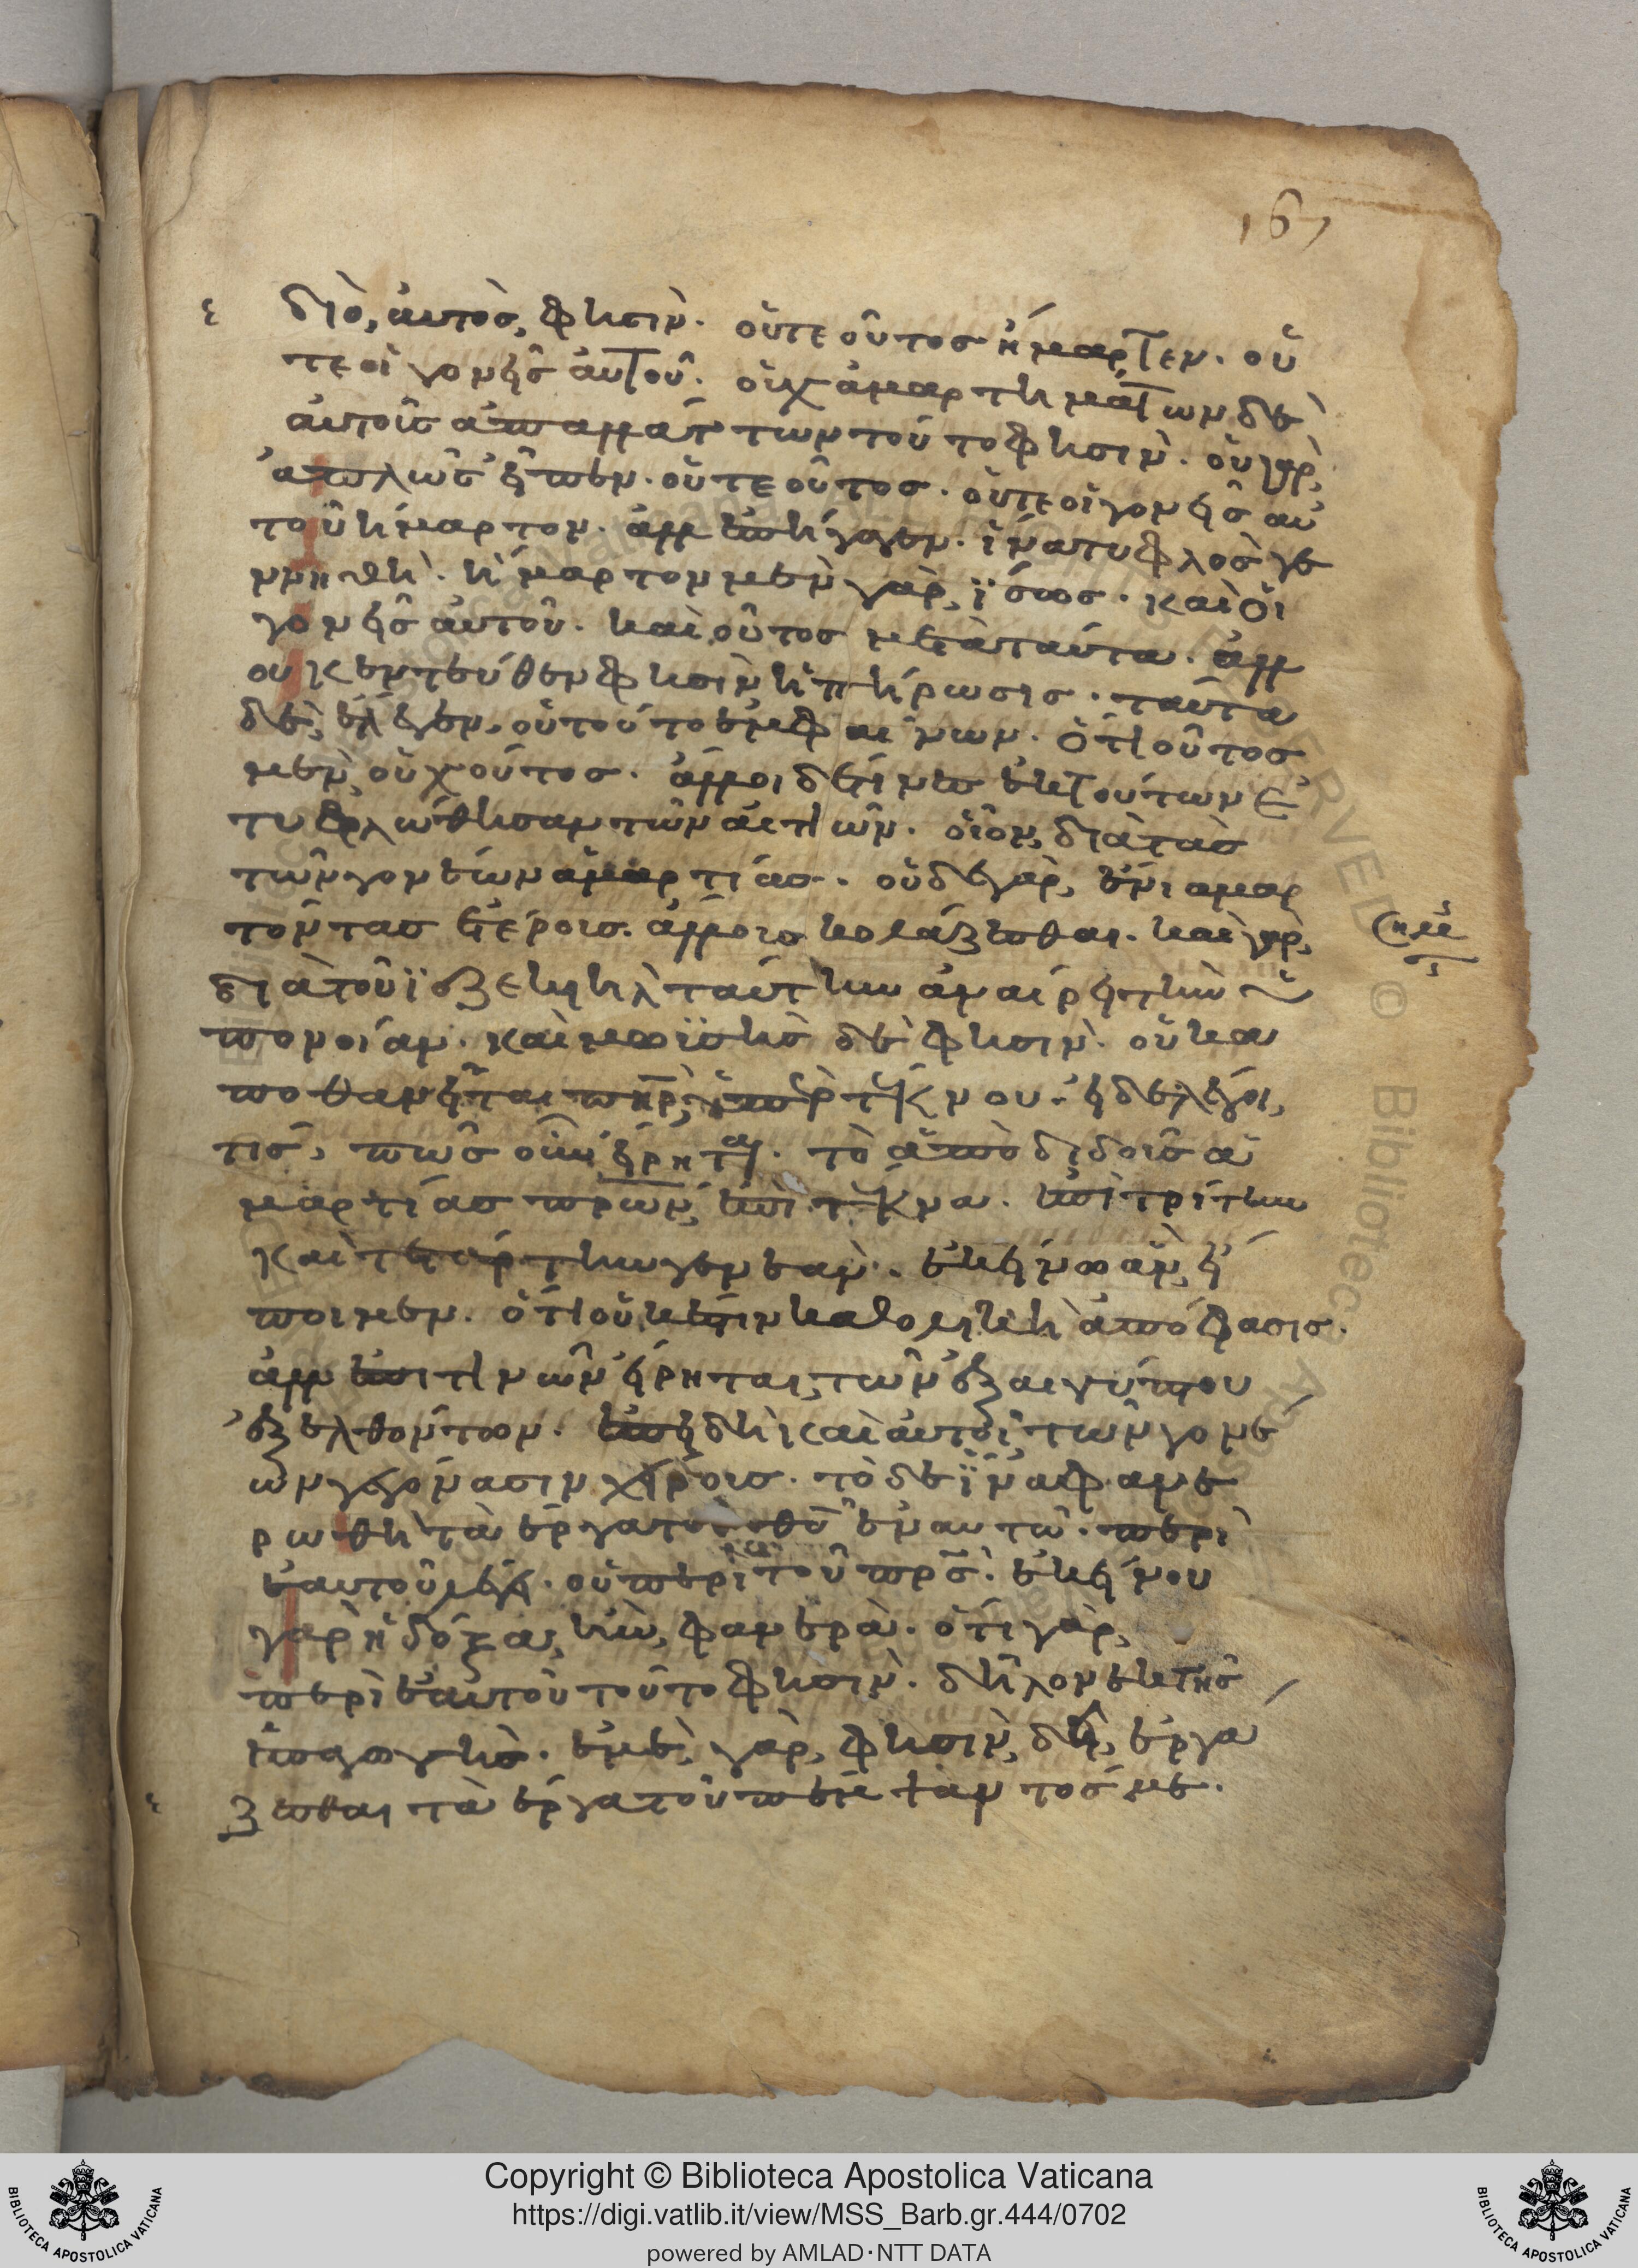 167
διὸ, αὐτὸς, φησὶν. οὔτε οὗτος ἥμαρτεν. οὔ
τε οἱ γονεῖς αὐτοῦ. οὐχ ἁμαρτημάτων δὲ
αὐτοὺς ἀπαλλάττων τοῦτο φησὶν. οὐ γὰρ,
ἁπλῶς εἶπεν. οὔτε οὗτος. οὔτε οἱ γονεῖς αὐ
τοῦ ἥμαρτον. ἀλλ ἐπήγαγεν. ἵνα τυφλὸς γε
ννηθῆ. ἥμαρτον μὲν γὰρ, ἴσως. καὶ οἱ
γονεῖς αὐτοῦ. καὶ οὗτος μετὰ ταῦτα. ἀλλ
οὐκ ἐντεῦθεν φησὶν ἡ πήρωσις. ταῦτα
δὲ, ἔλεγεν, οὐ τοῦτο ἐμφαίνων. ὅτι οὗτος
μὲν, οὐχ οὕτος. ἄλλοι δέ τινες ἐκ τούτων ἐ
τυφλώθησαν τῶν αἰτιῶν. οἷον, διὰ τὰς
τῶν γονέων ἁμαρτίας. οὐδὲ γὰρ, ἔνι ἁμαρ
τόντας ἑτέροις. ἄλλοις κολάζεσθαι. καὶ γὰρ,
διὰ τοῦ ἰεζεκιὴλ ταύτην ἀναιρεῖ τὴν ὑ
πόνοιαν. καὶ μωϋσῆς δὲ φησὶν. οὐκ ἀ
ποθανεῖται πηρ, ὑπὲρ τέκνου. εἰ δὲ λέγοι,
τίς, πῶς οὖν εἴρηται. τὸ ἀποδιδοὺς ἁ
μαρτίας πρων, ἐπὶ τέκνα. ἐπὶ τρίτην
καὶ τετάρτην γενεάν. ἐκεῖνο ἂν, εἴ
ποιμεν. ὅτι οὐκ ἔστιν καθολικὴ ἀπόφασις.
ἀλλ ἐπί τινων εἴρηται, τῶν ἐξ αἰγύπτου
ἐξελθόντων. ἐπειδὴ καὶ αὐτοὶ τῶν γονέ
ων γεγόνασιν χείροις. τὸ δὲ ἵνα φανε
ρωθῆ τὰ ἔργα τοῦ θυ ἐν αὐτῶ. περὶ
ἑαυτοῦ λέγει. οὐ περὶ τοῦ πρς. ἐκείνου
γὰρ ἡ δόξα, ἦν, φανερά. ὅτι γὰρ,
περὶ ἑαυτοῦ τοῦτο φησὶν. δῆλον ἐκ τῆς
ἐπαγωγῆς. ἐμὲ, γὰρ, φησὶν, δεῖ, ἐργά
ζεσθαι τὰ ἔργα τοῦ πέμψαντός με.
Copyright © Biblioteca Apostolica Vaticana
https://digi.vatlib.it/view/MSS_Barb.gr.444/0702
powered by AMLAD·NTT DATA
BIBLIOTECA APOSTOLICA VATICANA
BIBLIOTECA APOSTOLICA VATICANA